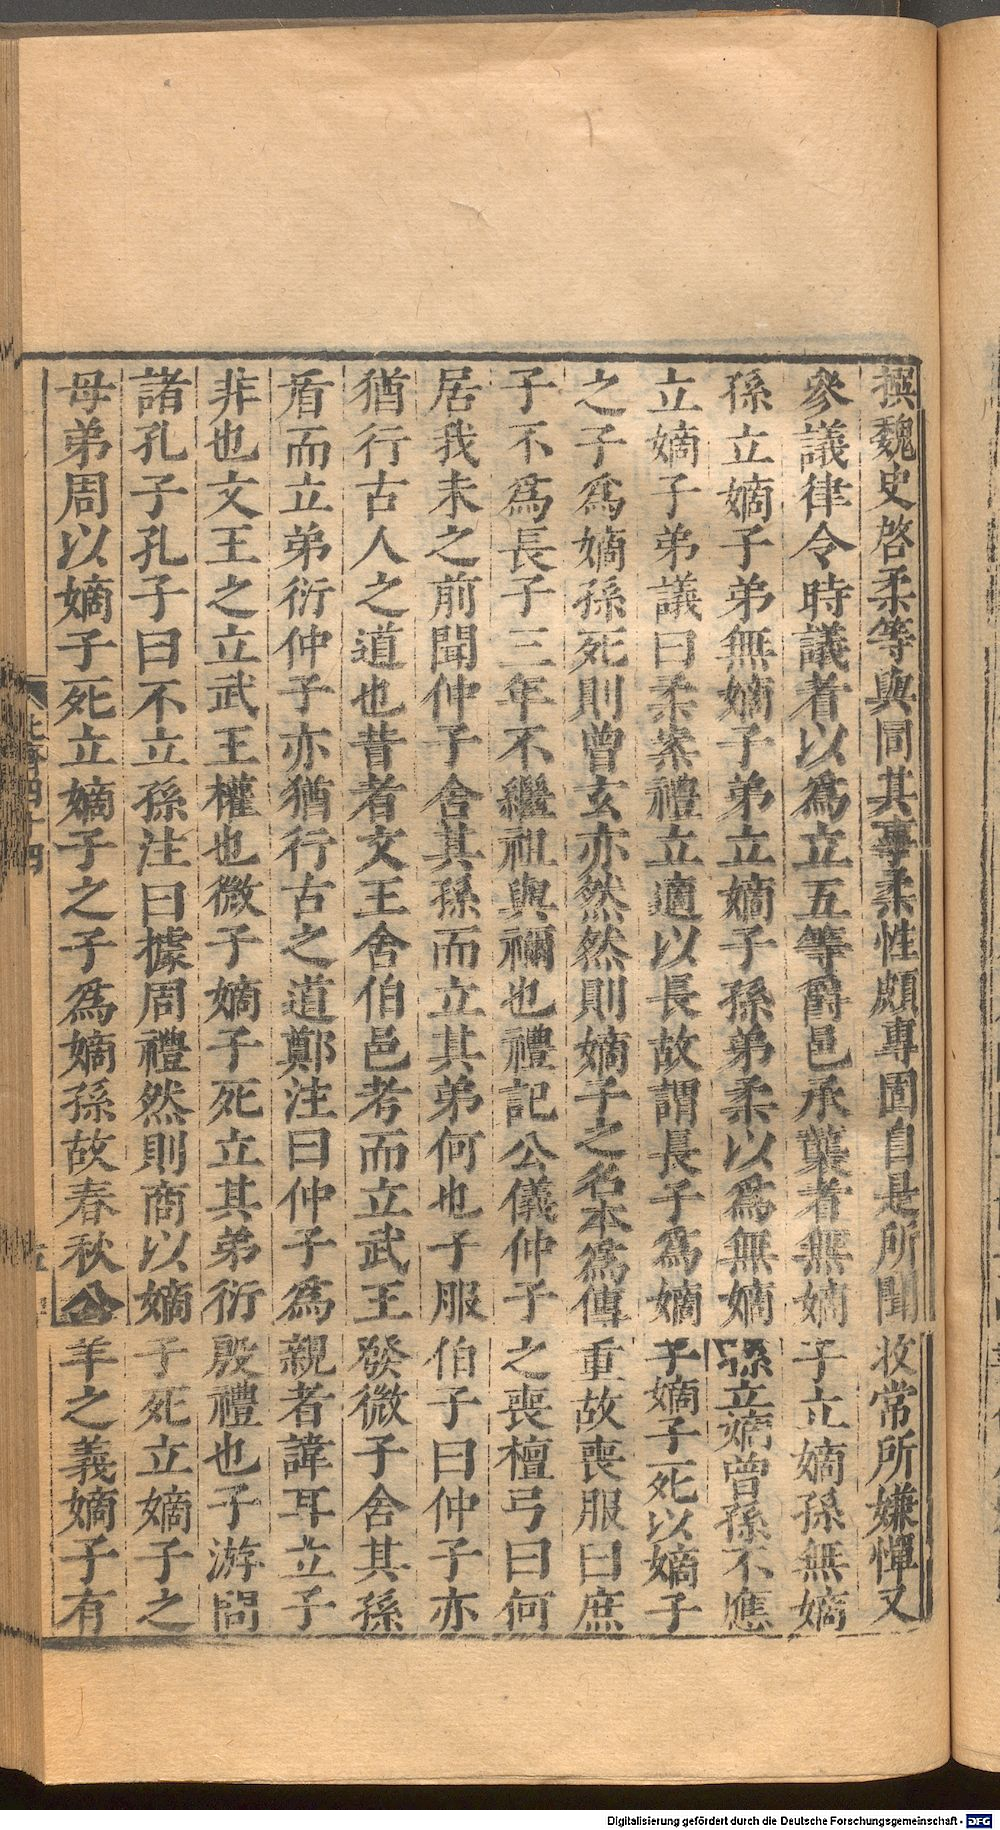 撰魏史啓柔等與同其事柔性頗專固自是所聞收常所嫌憚又
參議律令時議者以爲立五等爵邑承襲者無嫡子立嫡孫無嫡
孫立嫡子弟無嫡子弟立嫡子孫弟柔以爲無嫡孫立嫡曾孫不應
立嫡子弟議曰柔案禮立適以長故謂長子爲嫡子嫡子死以嫡子
之子爲嫡孫死則曾玄亦然然則嫡子之名本爲傳重故喪服曰庶
子不爲長子三年不繼祖與禰也禮記公儀仲子之喪檀弓曰何
居我未之前聞仲子舍其孫而立其弟何也子服伯子曰仲子亦
猶行古人之道也昔者文王舍伯邑考而立武王發微子舍其孫
盾而立弟衍仲子亦猶行古之道鄭注曰仲子爲親者諱耳立子
非也文王之立武王權也微子嫡子死立其弟衍殷禮也子游問
諸孔子孔子曰不立孫注曰據周禮然則商以嫡子死立嫡子之
母弟周以嫡子死立嫡子之子爲嫡孫故春秋公羊之義嫡子有
Digitalisierung gefördert durch die Deutsche Forschungsgemeinschaft - DFG